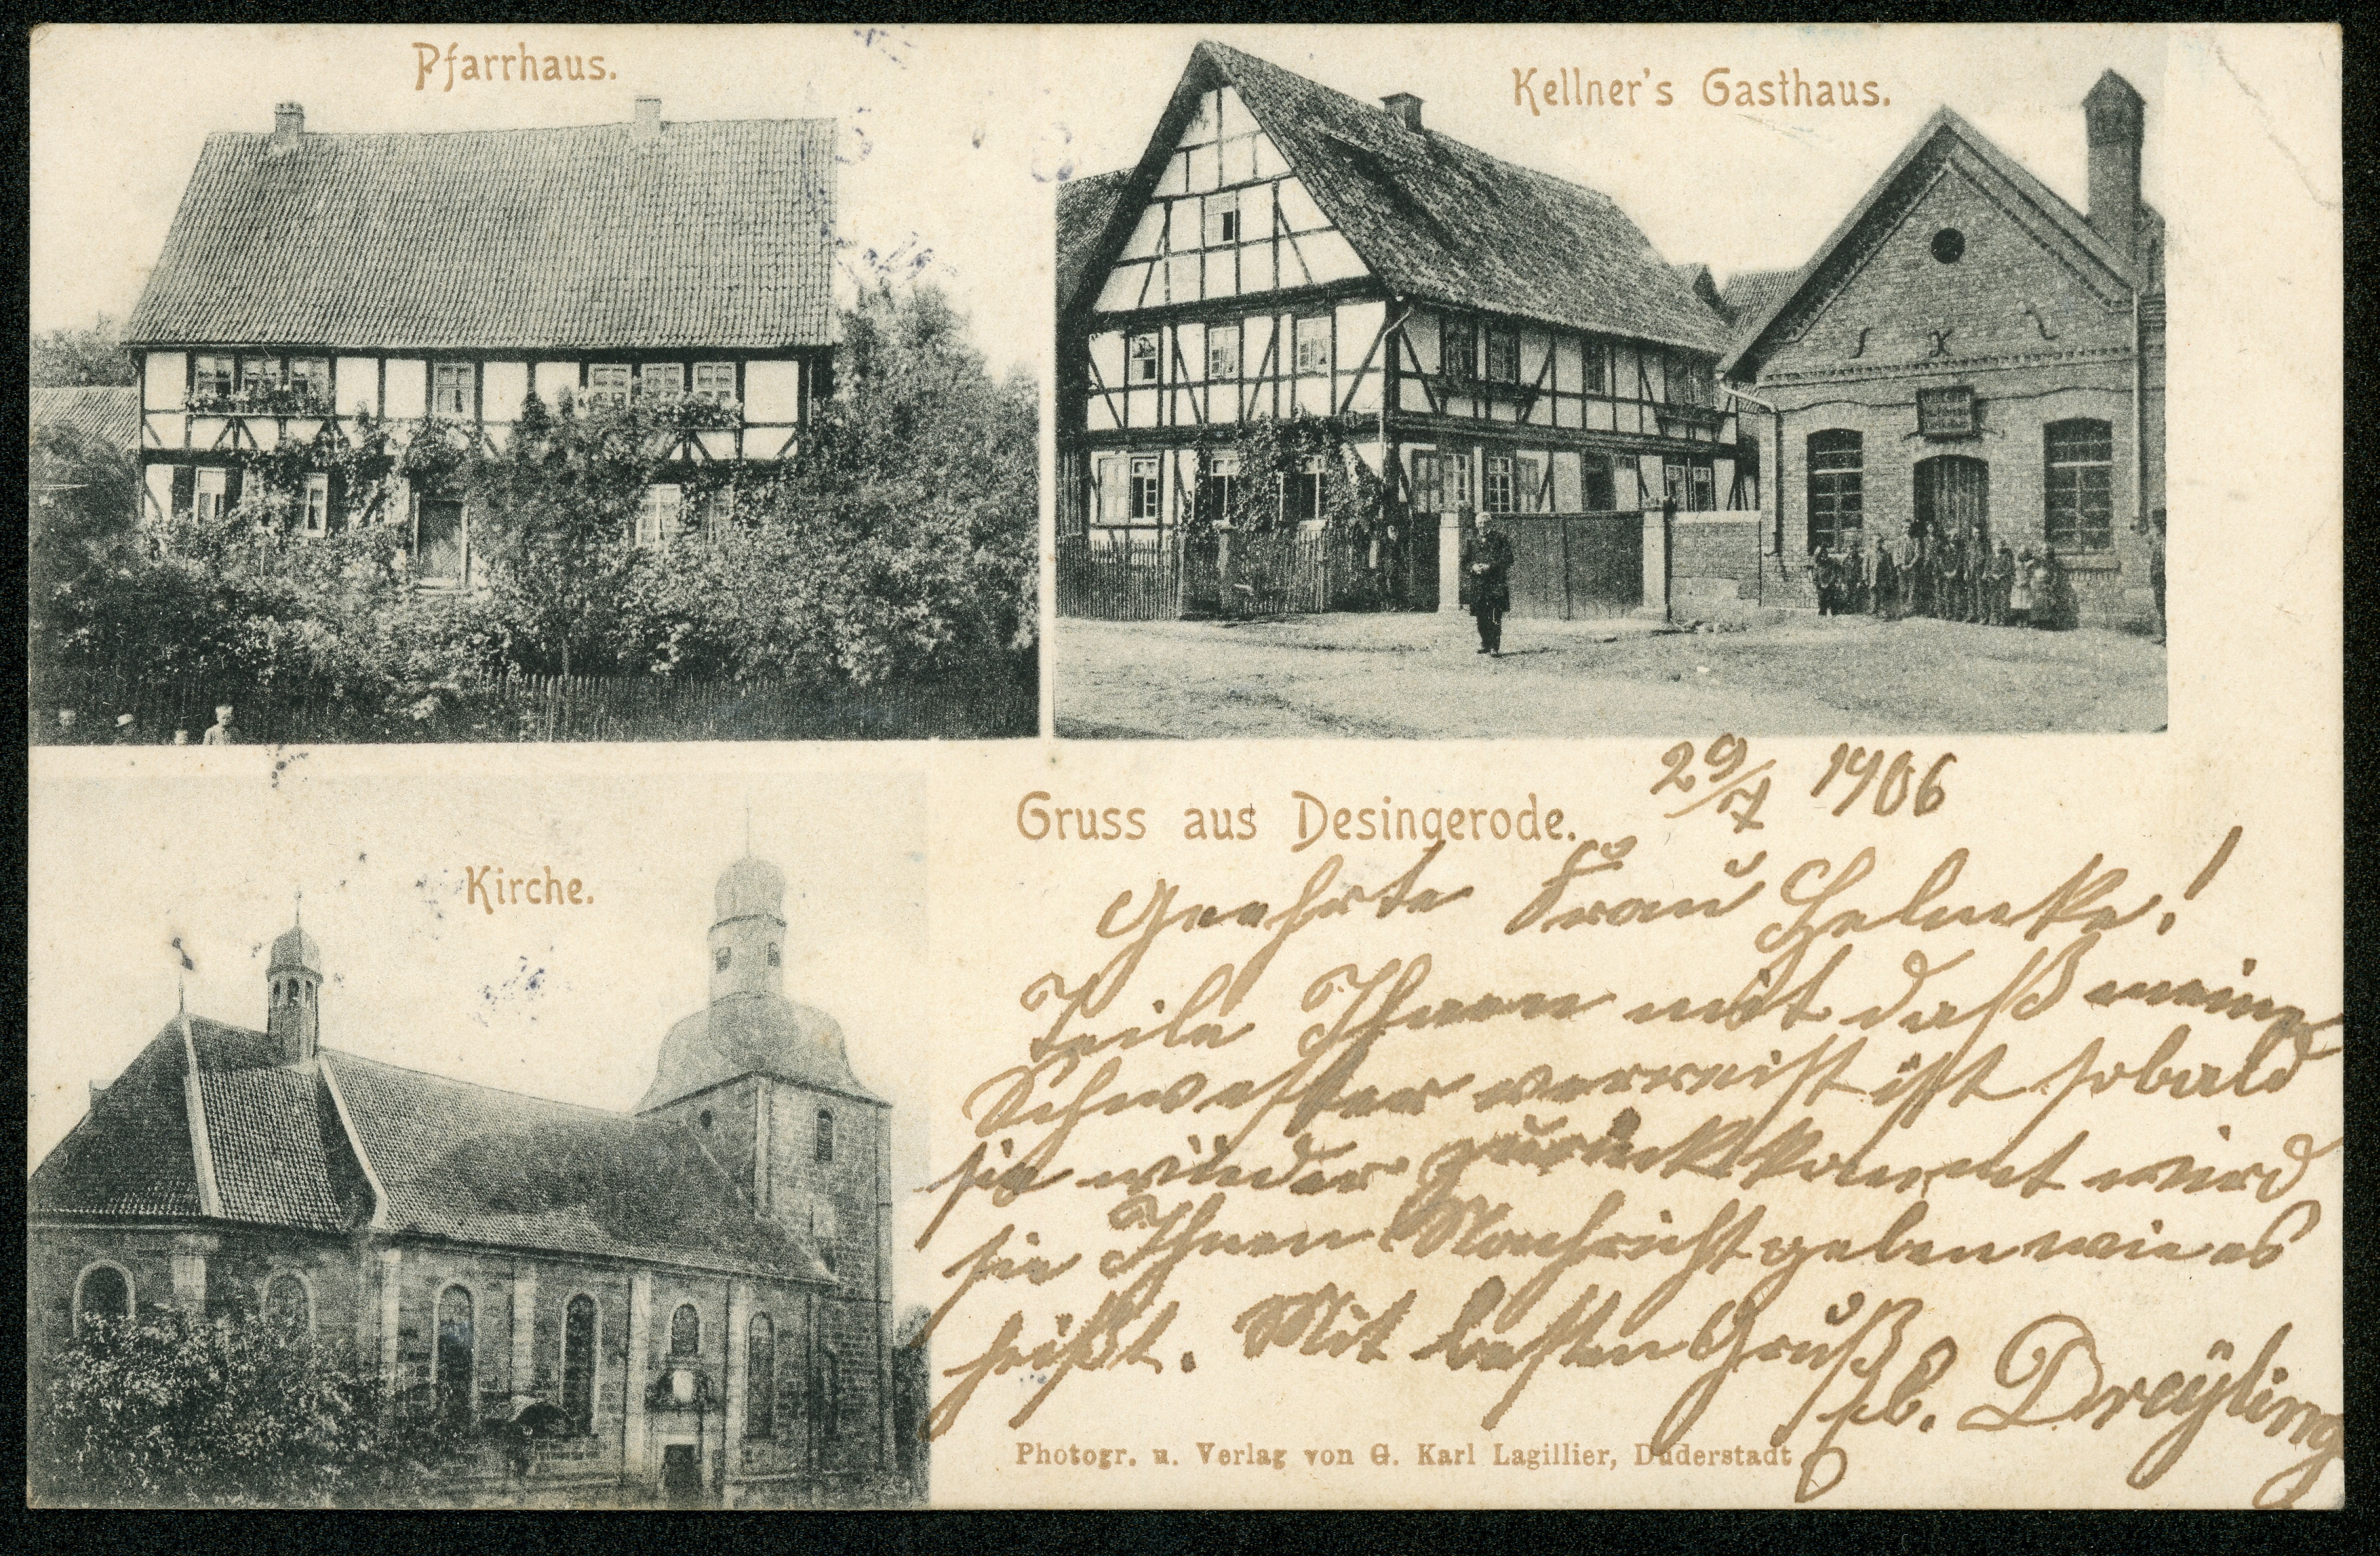 Pfarrhaus.
Kellner's Gasthaus.
Kirche.
Gruss aus Desingerode.
29/7 1906
Geehrte Frau Helmke!
Teile Ihnen mit daß meine
Schwester verreist ist sobald
sie wieder zurückkommt wird
sie Ihnen Nachricht geben wie es
heißt. Mit besten Gruß
Dreyling
Photogr. u. Verlag von G. Karl Lagillier, Duderstadt